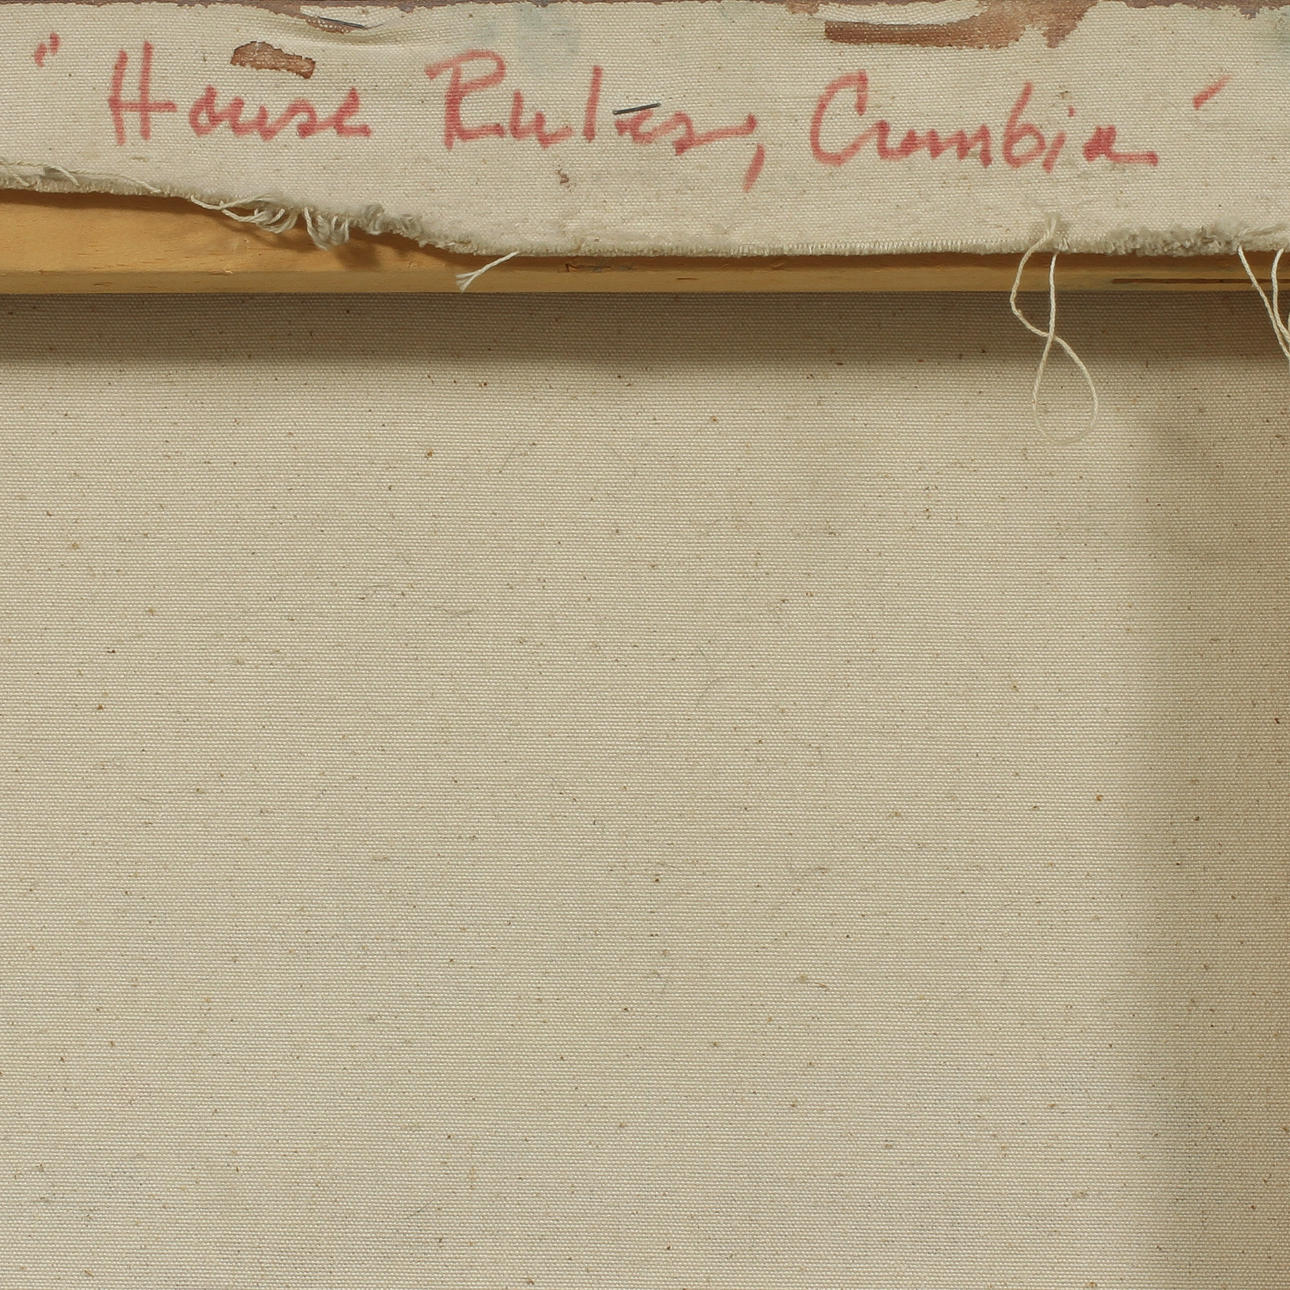 "House Rules, Cumbia"